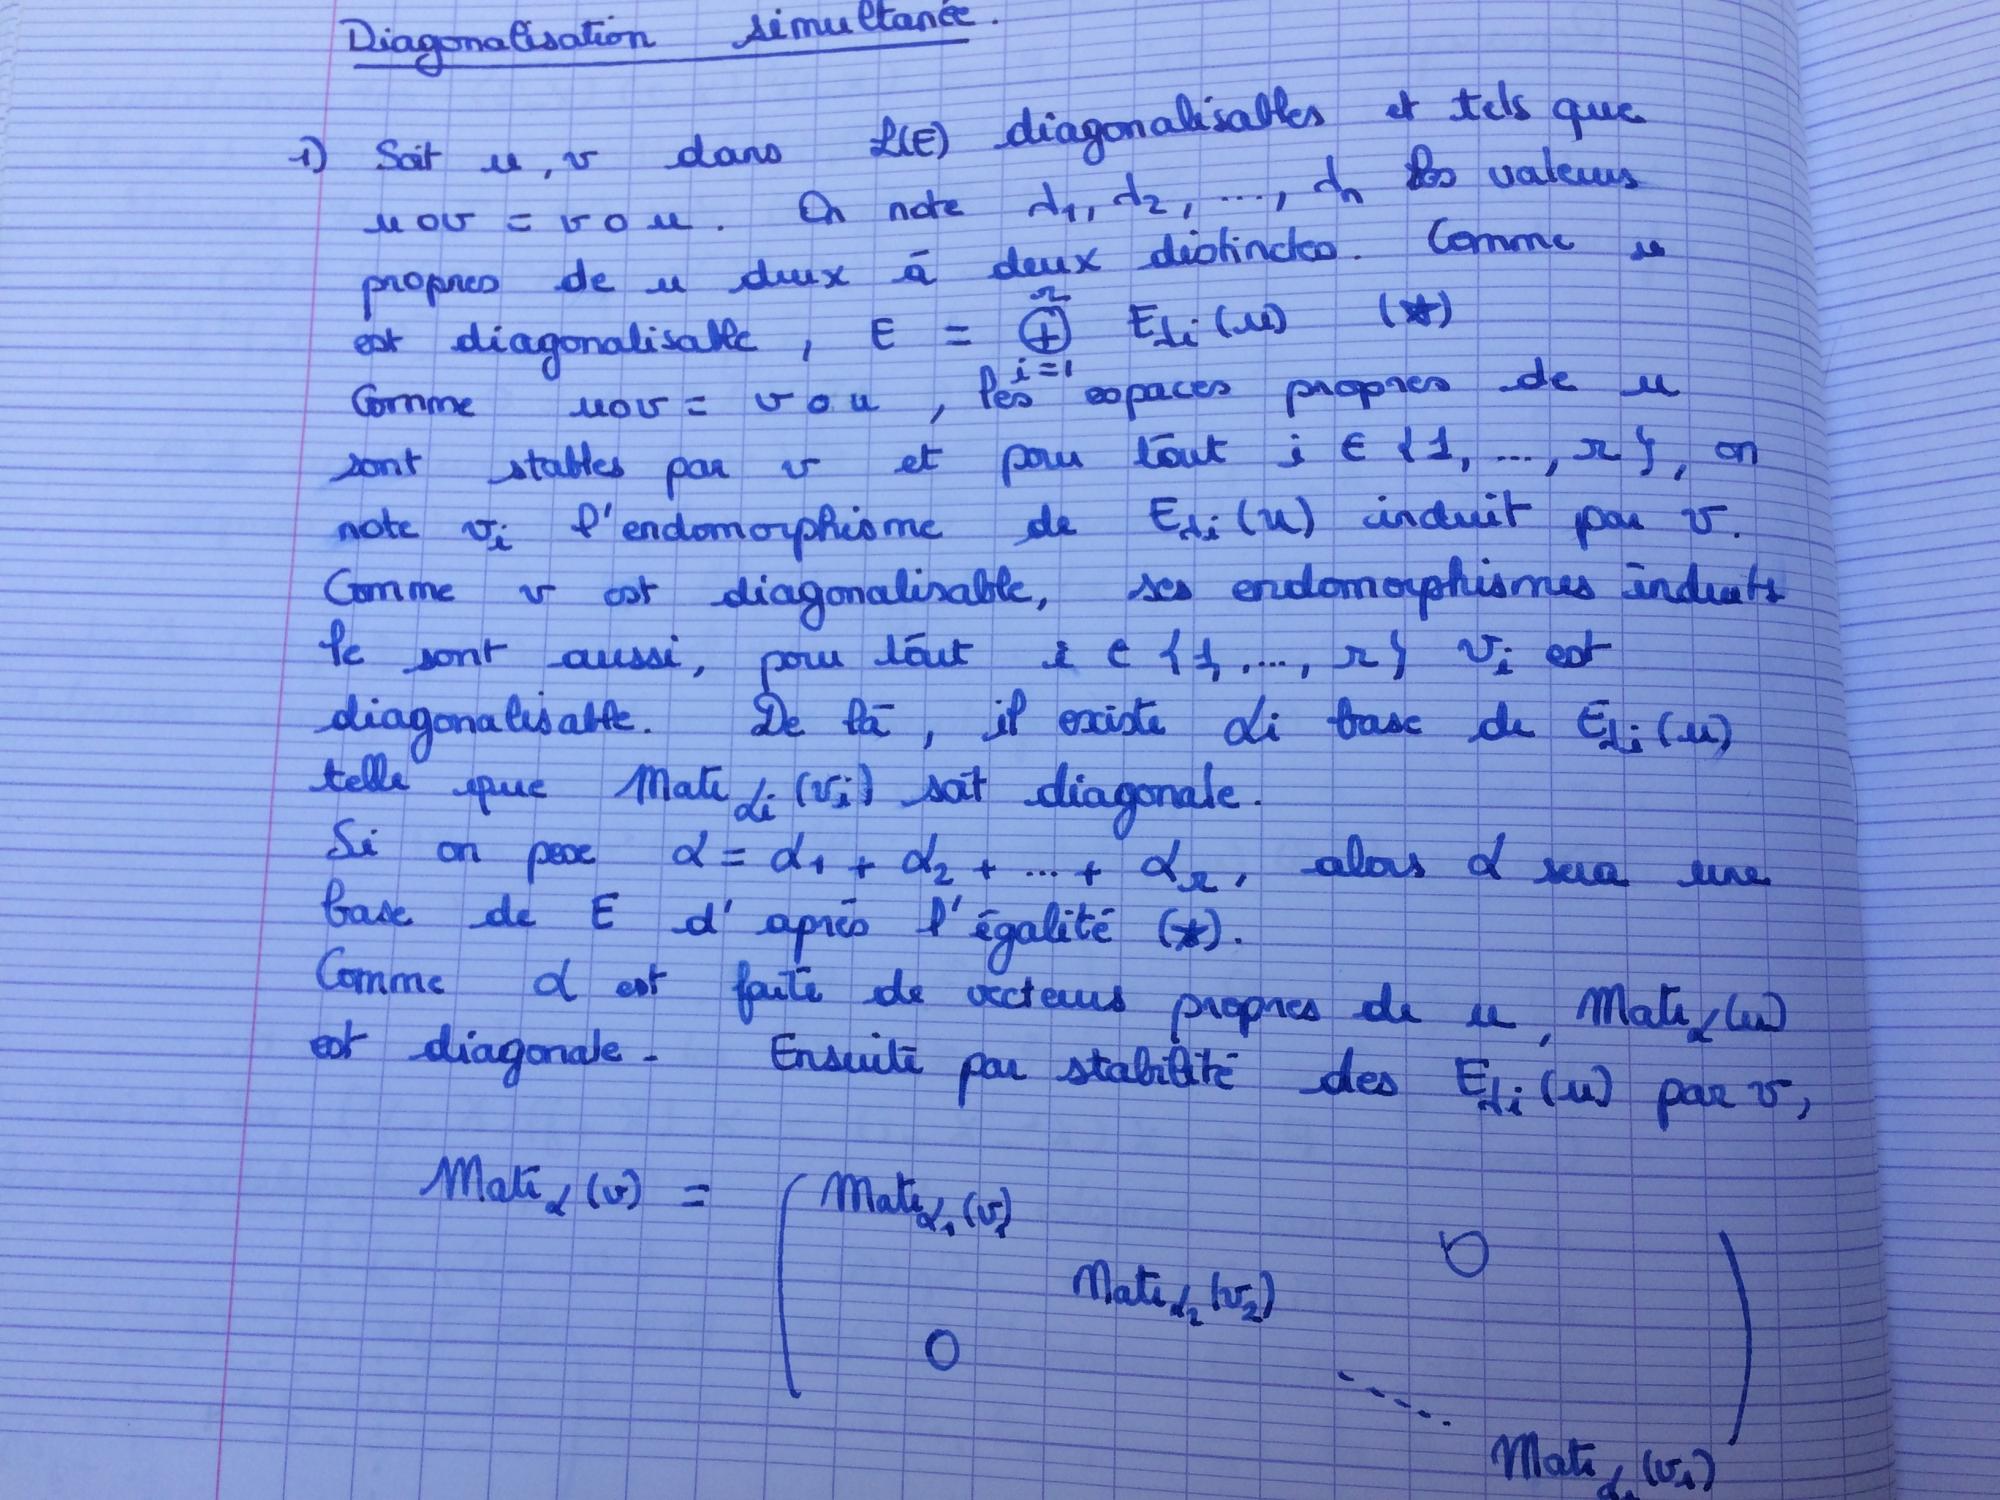 Diagonalisation simultanée.
1) Soit u, v dans L(E) diagonalisables et tels que
u o v = v o u. On note λ1, λ2, ..., λr les valeurs
propres de u deux à deux distinctes. Comme u
est diagonalisable, E = ⊕_{i=1}^{r} Eλi(u) (*)
Comme uov = v o u, les espaces propres de u
sont stables par v et pour tout i ∈ {1, ..., r}, on
note vi l'endomorphisme de Eλi(u) induit par v.
Comme v est diagonalisable, ses endomorphismes induits
le sont aussi, pour tout i ∈ {1, ..., r} vi est
diagonalisable. De là, il existe αi base de Eλi(u)
telle que Mat αi (vi) soit diagonale.
Si on pose α = α1 + α2 + ... + αr, alors α sera une
base de E d'après l'égalité (*).
Comme α est faite de vecteurs propres de u, Mat α (u)
est diagonale. Ensuite par stabilité des Eλi(u) par v,
Mat α (v) = ( Mat α1 (v1)
0
Mat α2 (v2)
0
)
Mat